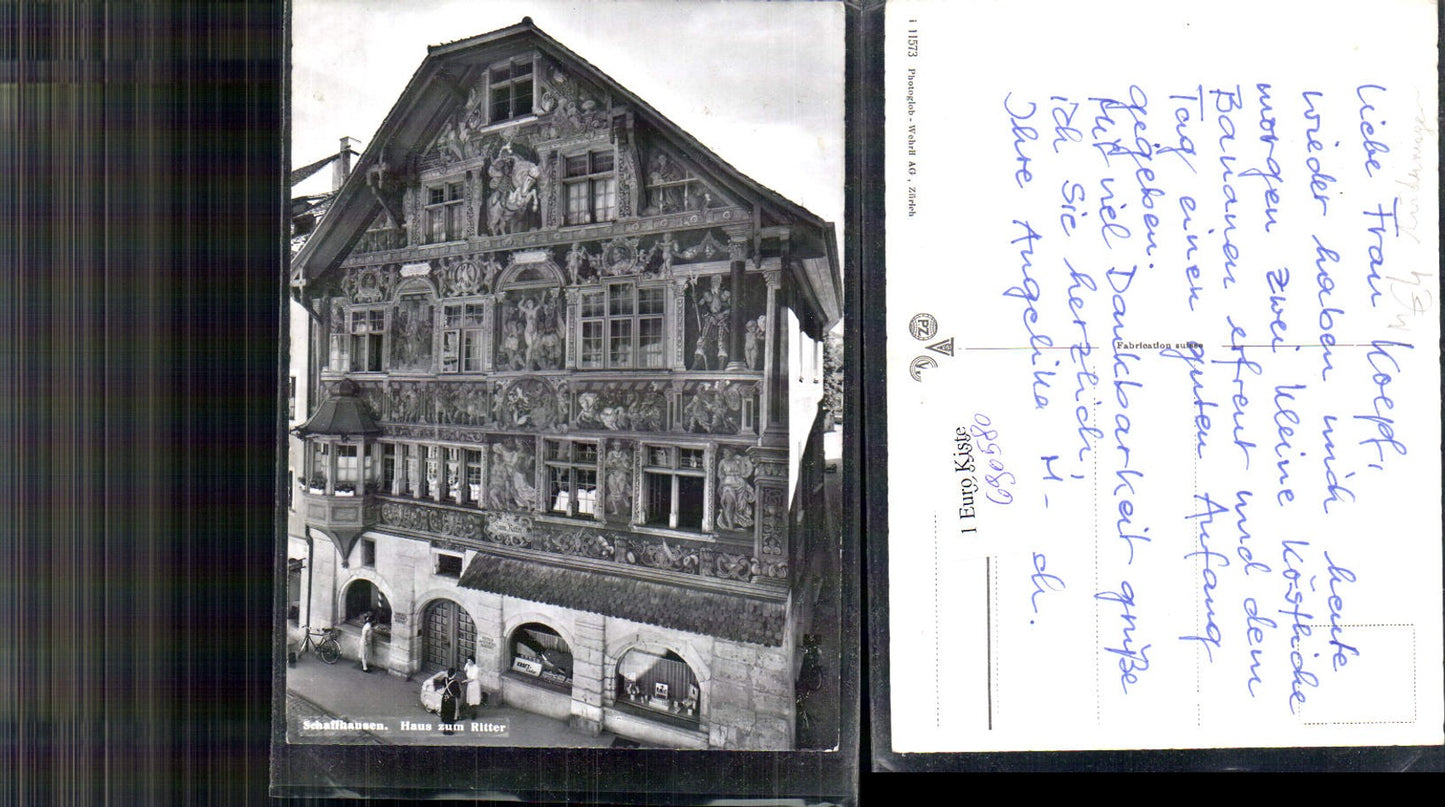 Schaffhausen. Haus zum Ritter
i 11573 Photoglob-Wehrli AG, Zürich
PZ
Fabrication suisse
1 Euro Kiste
680580
Liebe Frau Koepf,
wieder haben mich heute
morgen zwei kleine köstliche
Bananen erfreut und dem
Tag einen guten Anfang
gegeben.
Mit viel Dankbarkeit grüße
ich Sie herzlich,
Ihre Angelika M- ch.